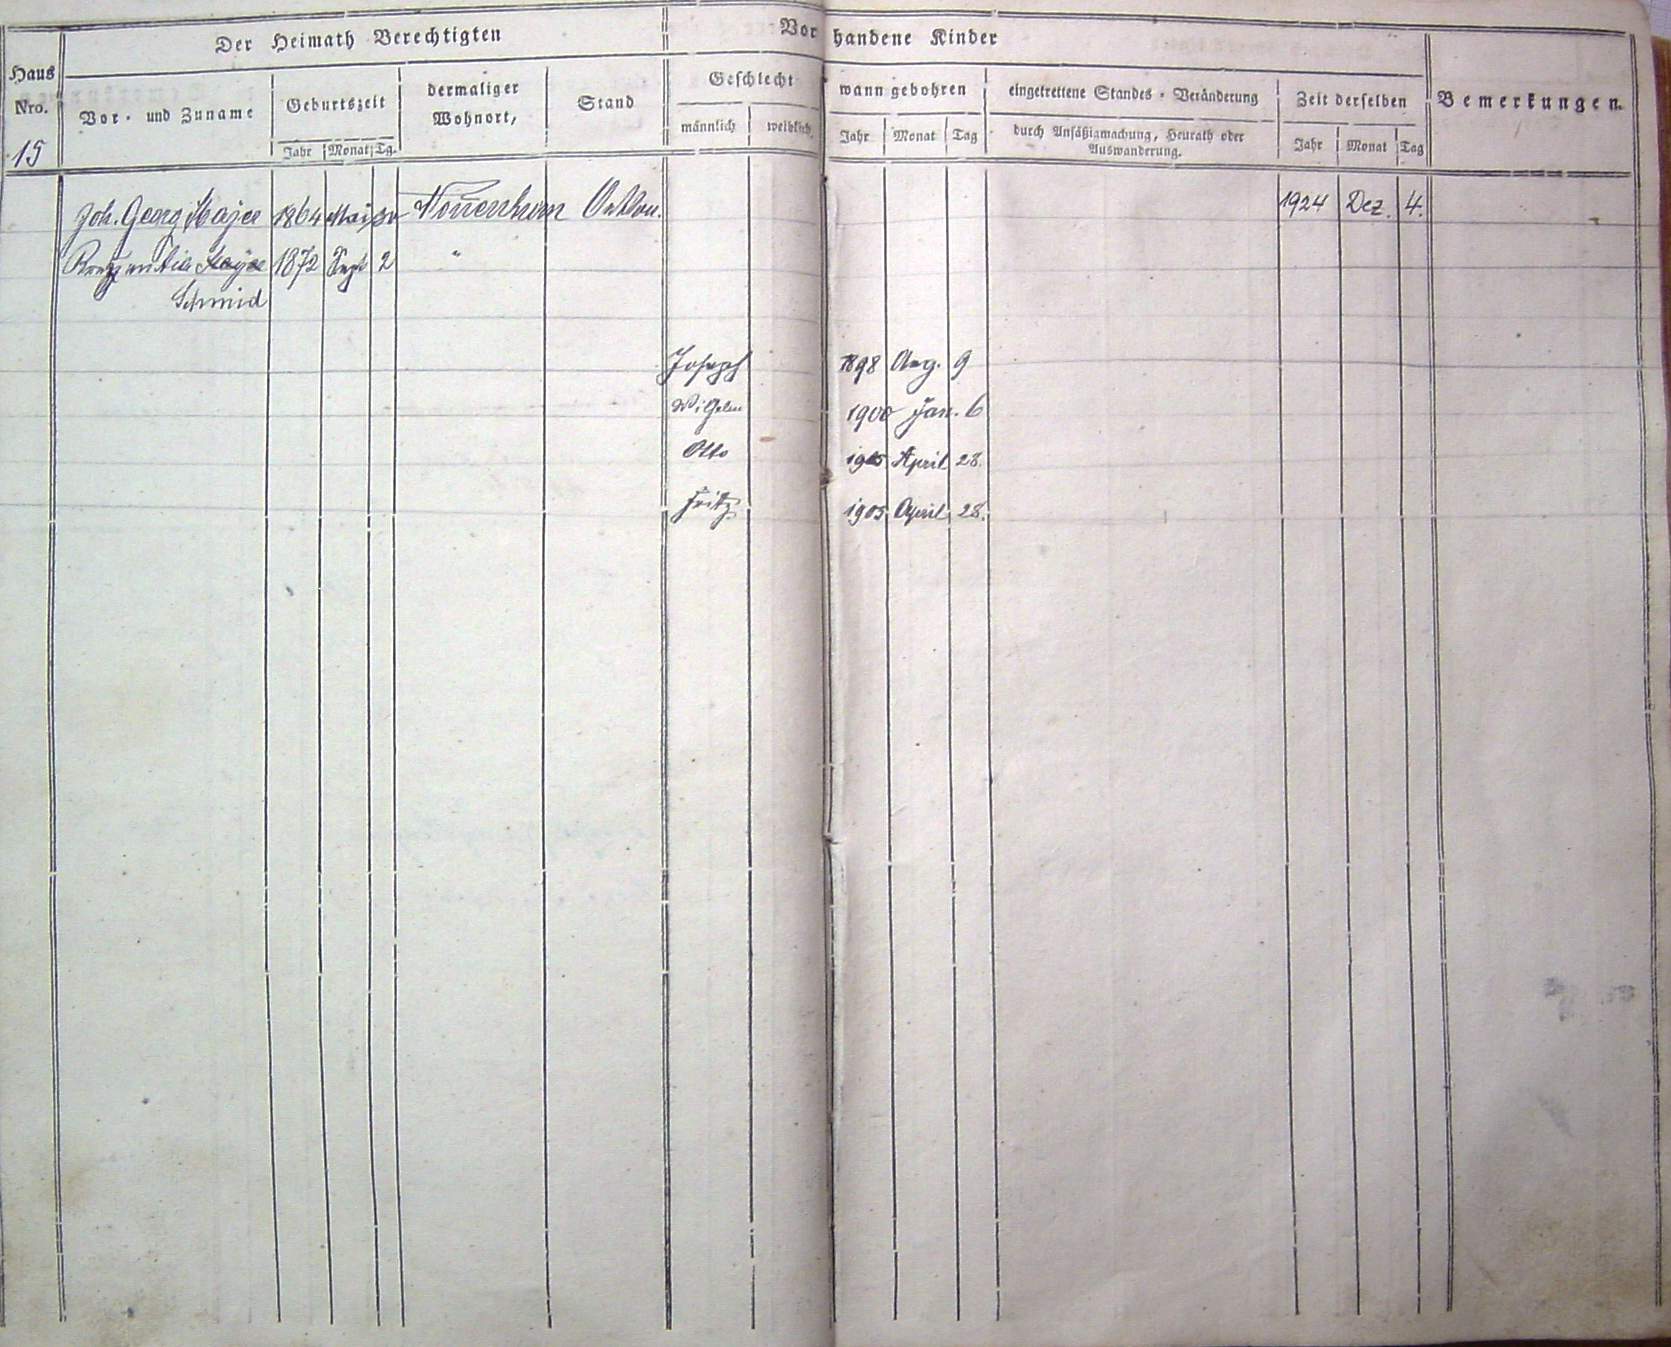 Der Heimath Berechtigten
Vorhandene Kinder
Haus Nro.
15
Vor- und Zuname
Geburtszeit
Jahr Monat Tg.
dermaliger Wohnort,
Stand
Geschlecht
männlich weiblich
wann gebohren
Jahr Monat Tag
eingetrettene Standes-Veränderung
durch Ansäßigmachung, Heurath oder
Auswanderung.
Zeit derselben
Jahr Monat Tag
Bemerkungen.
Joh. Georg Mayer 1864 Mai Nonnenhorn 1924 Dez. 4.
Kreszentia Mayer 1872 Sept 2 "
Schmid
Joseph 1898 Aug. 9
Wilhelm 1900 Jan. 6
Otto 1905 April 28.
Fritz 1905 April 28.